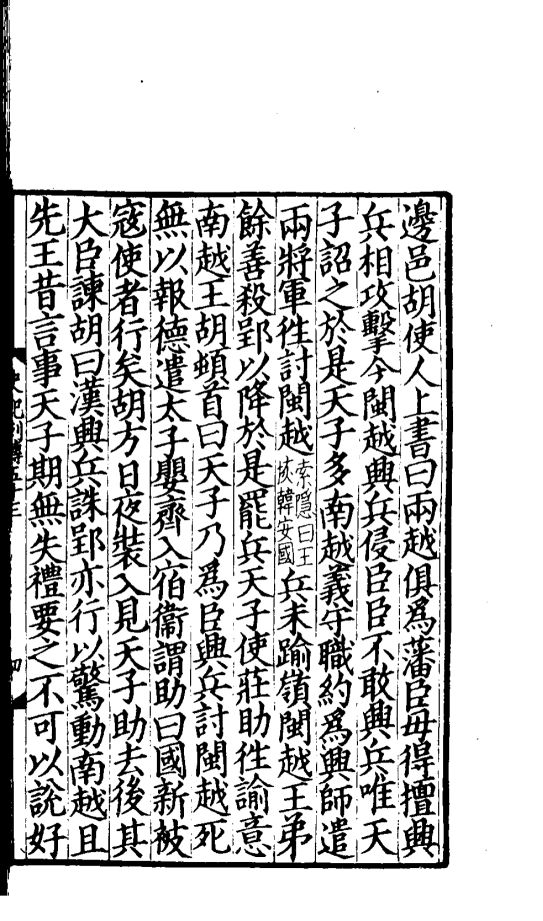 邊邑胡使人上書曰兩越俱爲藩臣毋得擅興
兵相攻擊今閩越興兵侵臣臣不敢興兵唯天
子詔之於是天子多南越義守職約爲興師遣
兩將軍徃討閩越索隱曰王恢韓安國兵未踰嶺閩越王弟
餘善殺郢以降於是罷兵天子使莊助徃諭意
南越王胡頓首曰天子乃爲臣興兵討閩越死
無以報德遣太子嬰齊入宿衞謂助曰國新被
寇使者行矣胡方日夜裝入見天子助去後其
大臣諫胡曰漢興兵誅郢亦行以驚動南越且
先王昔言事天子期無失禮要之不可以說好
列傳五十三